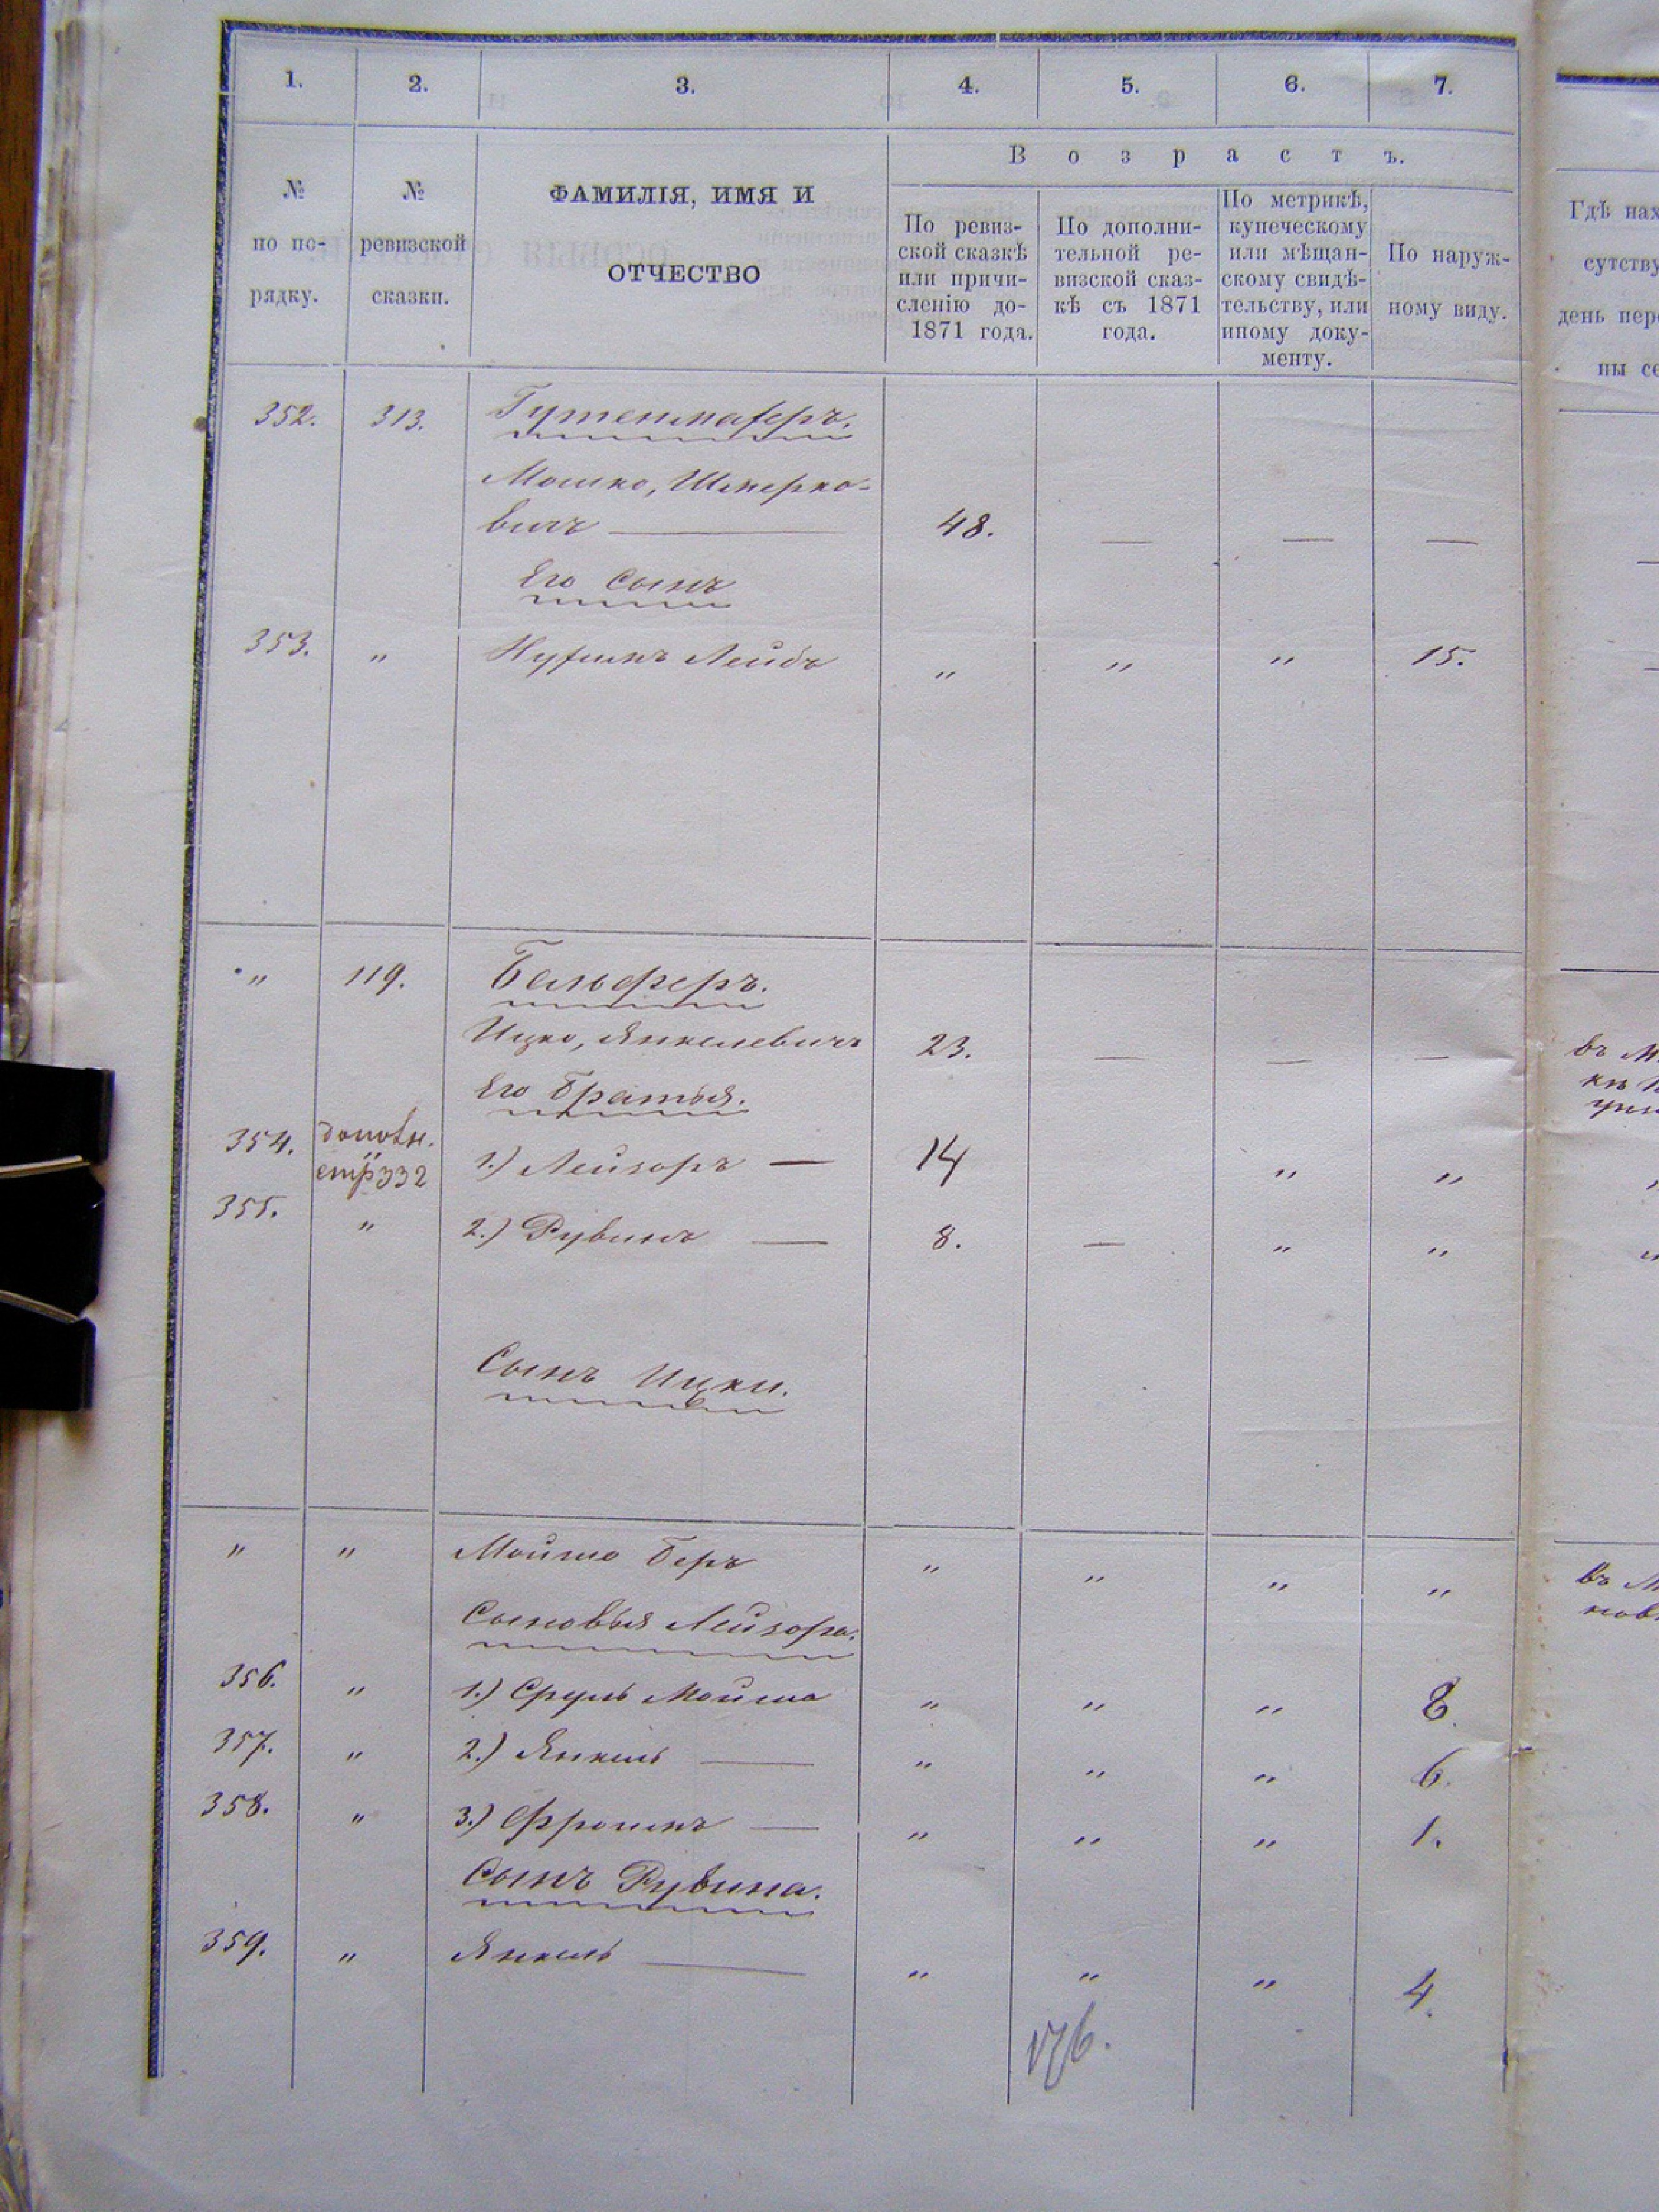 1. 2. 3. 4. 5. 6. 7.
Возрастъ.
№ по по-рядку.
№ ревизской сказки.
ФАМИЛІЯ, ИМЯ И
ОТЧЕСТВО
По ревиз-
ской сказкѣ
или причи-
сленію до-
1871 года.
По дополни-
тельной ре-
визской сказ-
кѣ съ 1871
года.
По метрикѣ,
купеческому
или мѣщан-
скому свидѣ-
тельству, или
иному доку-
менту.
По наруж-
ному виду.
Гдѣ нах
сутству
день пер
ны се
352. 313. Гутенмахеръ.
Мошко, Шмерко-
вичъ — 48. — — —
Его Сынъ
353. " Нухимъ Лейбъ " " " 15.
" 119. Бельферъ.
Ицко, Янкелевичъ 23. — — —
Его братья.
354. дополн. стр 332 1.) Лейзоръ — 14 " "
355. " 2.) Рувинъ — 8. — " "
Сынъ Ицки.
" " Мойше Беръ " " " "
Сыновья Лейзора.
356. " 1.) Сруль Мойше " " " 8.
357. " 2.) Янкель — " " " 6.
358. " 3.) Фроимъ — " " " 1.
Сынъ Рувина.
359. " Янкель — " " " 4.
176.